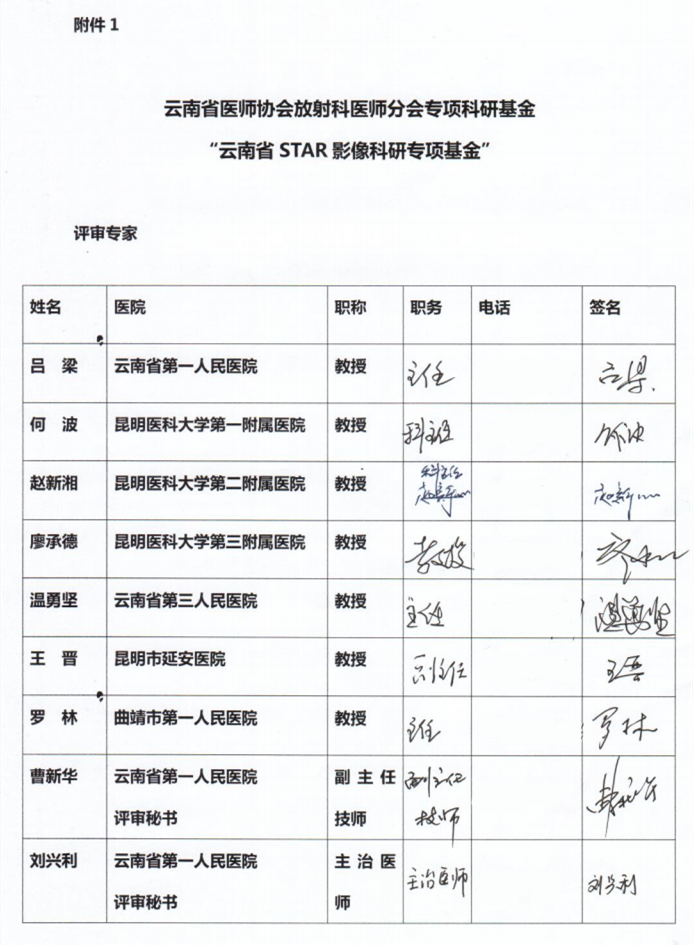 附件 1
云南省医师协会放射科医师分会专项科研基金
“云南省 STAR 影像科研专项基金”
评审专家
姓名 医院 职称 职务 电话 签名
吕 梁 云南省第一人民医院 教授 主任 吕梁
何 波 昆明医科大学第一附属医院 教授 科主任 何波
赵新湘 昆明医科大学第二附属医院 教授 科主任 赵新湘
廖承德 昆明医科大学第三附属医院 教授 教授
温勇坚 云南省第三人民医院 教授 主任 温勇坚
王 晋 昆明市延安医院 教授 副主任 王晋
罗 林 曲靖市第一人民医院 教授 主任 罗林
曹新华 云南省第一人民医院 副 主 任 副主任
评审秘书 技师 技师
刘兴利 云南省第一人民医院 主 治 医 主治医师 刘兴利
评审秘书 师